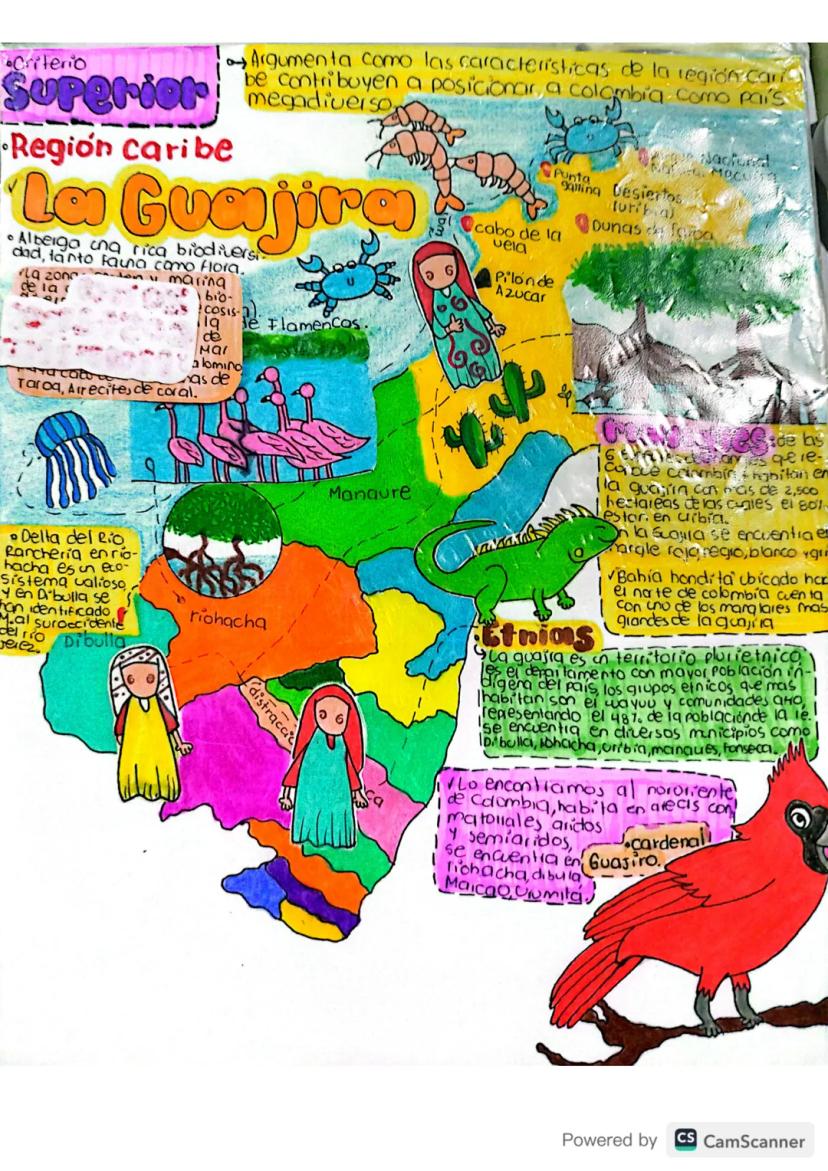 •Criterio
Superior
Argumenta como las características de la región cari-
be contribuyen a posicionar a colombia como país
megadiverso.
•Región caribe
La Guajira
•Alberga una rica biodiversi-
dad, tanto Fauna como Flora.
•La zona marina
de la bio-
cosis-
la
de
Mar
alomino
nas de
Taroa, Arrecifes de coral.
de Flamencos.
Punta
gallina
Desiertos
(uribia)
Nacional
Natural Macuira
cabo de la
vela
Dunas de Taroa
Pilón de
Azucar
Manaure
Manglares: de las
colombia habitan en
la guajira con mas de 2,500
hectareas de las cuales el 80%
estan en uribia.
En la Guajira se encuentra el
mangle rojo, negro, blanco y gri
✓Bahía hondita ubicado hac
el norte de colombia cuenta
con uno de los manglares mas
grandes de la guajira
•Delta del Río
Ranchería en rio-
hacha es un eco-
sistema valioso,
y en Dibulla se
han identificado
al suroccidente
del río
Jerez.
Dibulla
riohacha
distracción
ca
•Etnias
La guajira es un territorio plurietnico,
es el departamento con mayor población in-
dígena del país, los grupos etnicos que mas
habitan son el wayuu y comunidades
representando el 48% de la población de la
se encuentra en diversos municipios como
Dibulla, Riohacha, uribia, manaure, Fonseca.
✓Lo encontramos al nororiente
de Colombia, habita en areas con
matorrales aridos
y semiaridos,
se encuentra en
riohacha, dibulla
Maicao, Urumita,
•cardenal
Guajiro.
Powered by CS CamScanner